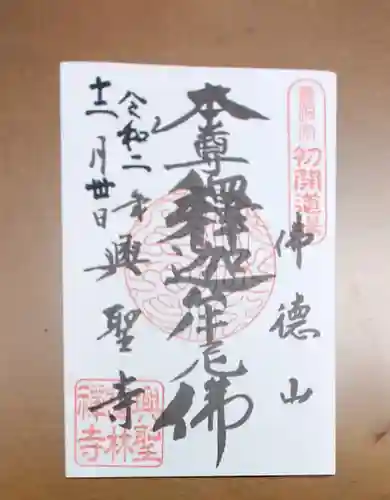 初開道場
佛德山
本尊釋迦牟尼佛
興聖寺
令和二年
十二月廿日
興聖
禅林
禅寺